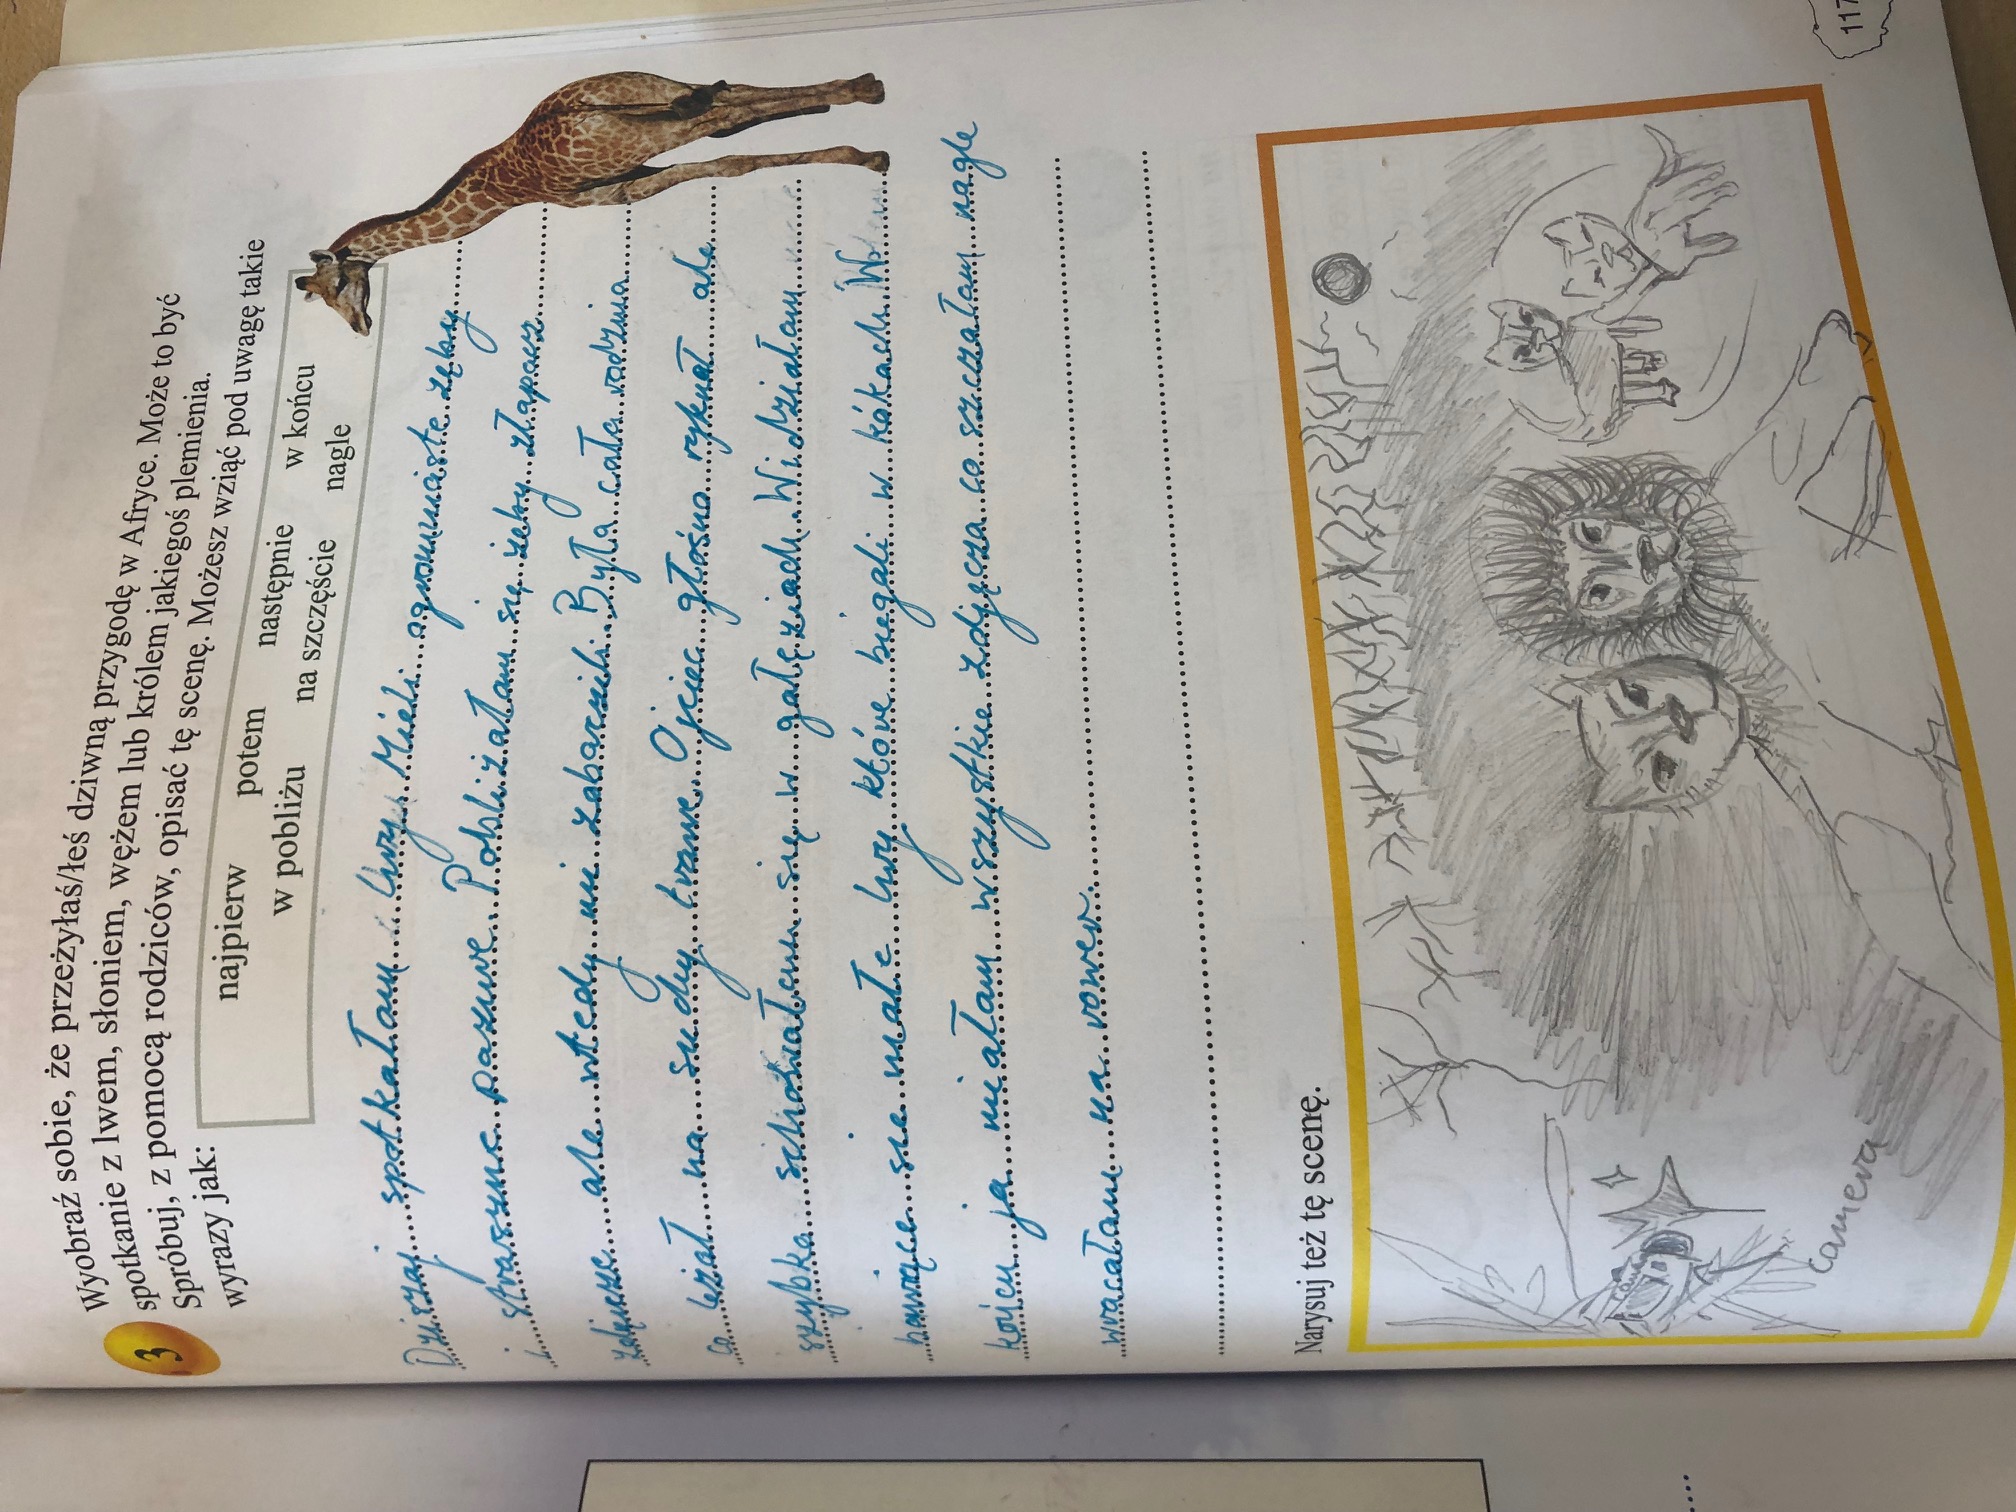 3
Wyobraź sobie, że przeżyłaś/łeś dziwną przygodę w Afryce. Może to być
spotkanie z lwem, słoniem, wężem lub królem jakiegoś plemienia.
Spróbuj, z pomocą rodziców, opisać tę scenę. Możesz wziąć pod uwagę takie
wyrazy jak:
najpierw potem następnie w końcu
w pobliżu na szczęście nagle
Dziszaj spotkałam lwy. Mieli ogromniaste zęby
i straszne pazure. Pobliżałam się żeby złapacz
zdięcze ale wtedy mi zobarzili. Była cała rodzina
co leżał na suchy trawe. Ojciec głośno ryknał ale
szybko schowałem się w gałęziach. Widziałam
bawiące sie małe lwy które biegali w kókach. W
końcu ja miałam wszystkie zdjęcza co szczałam nagle
wracałam na rower.
Narysuj też tę scenę.
camera
117